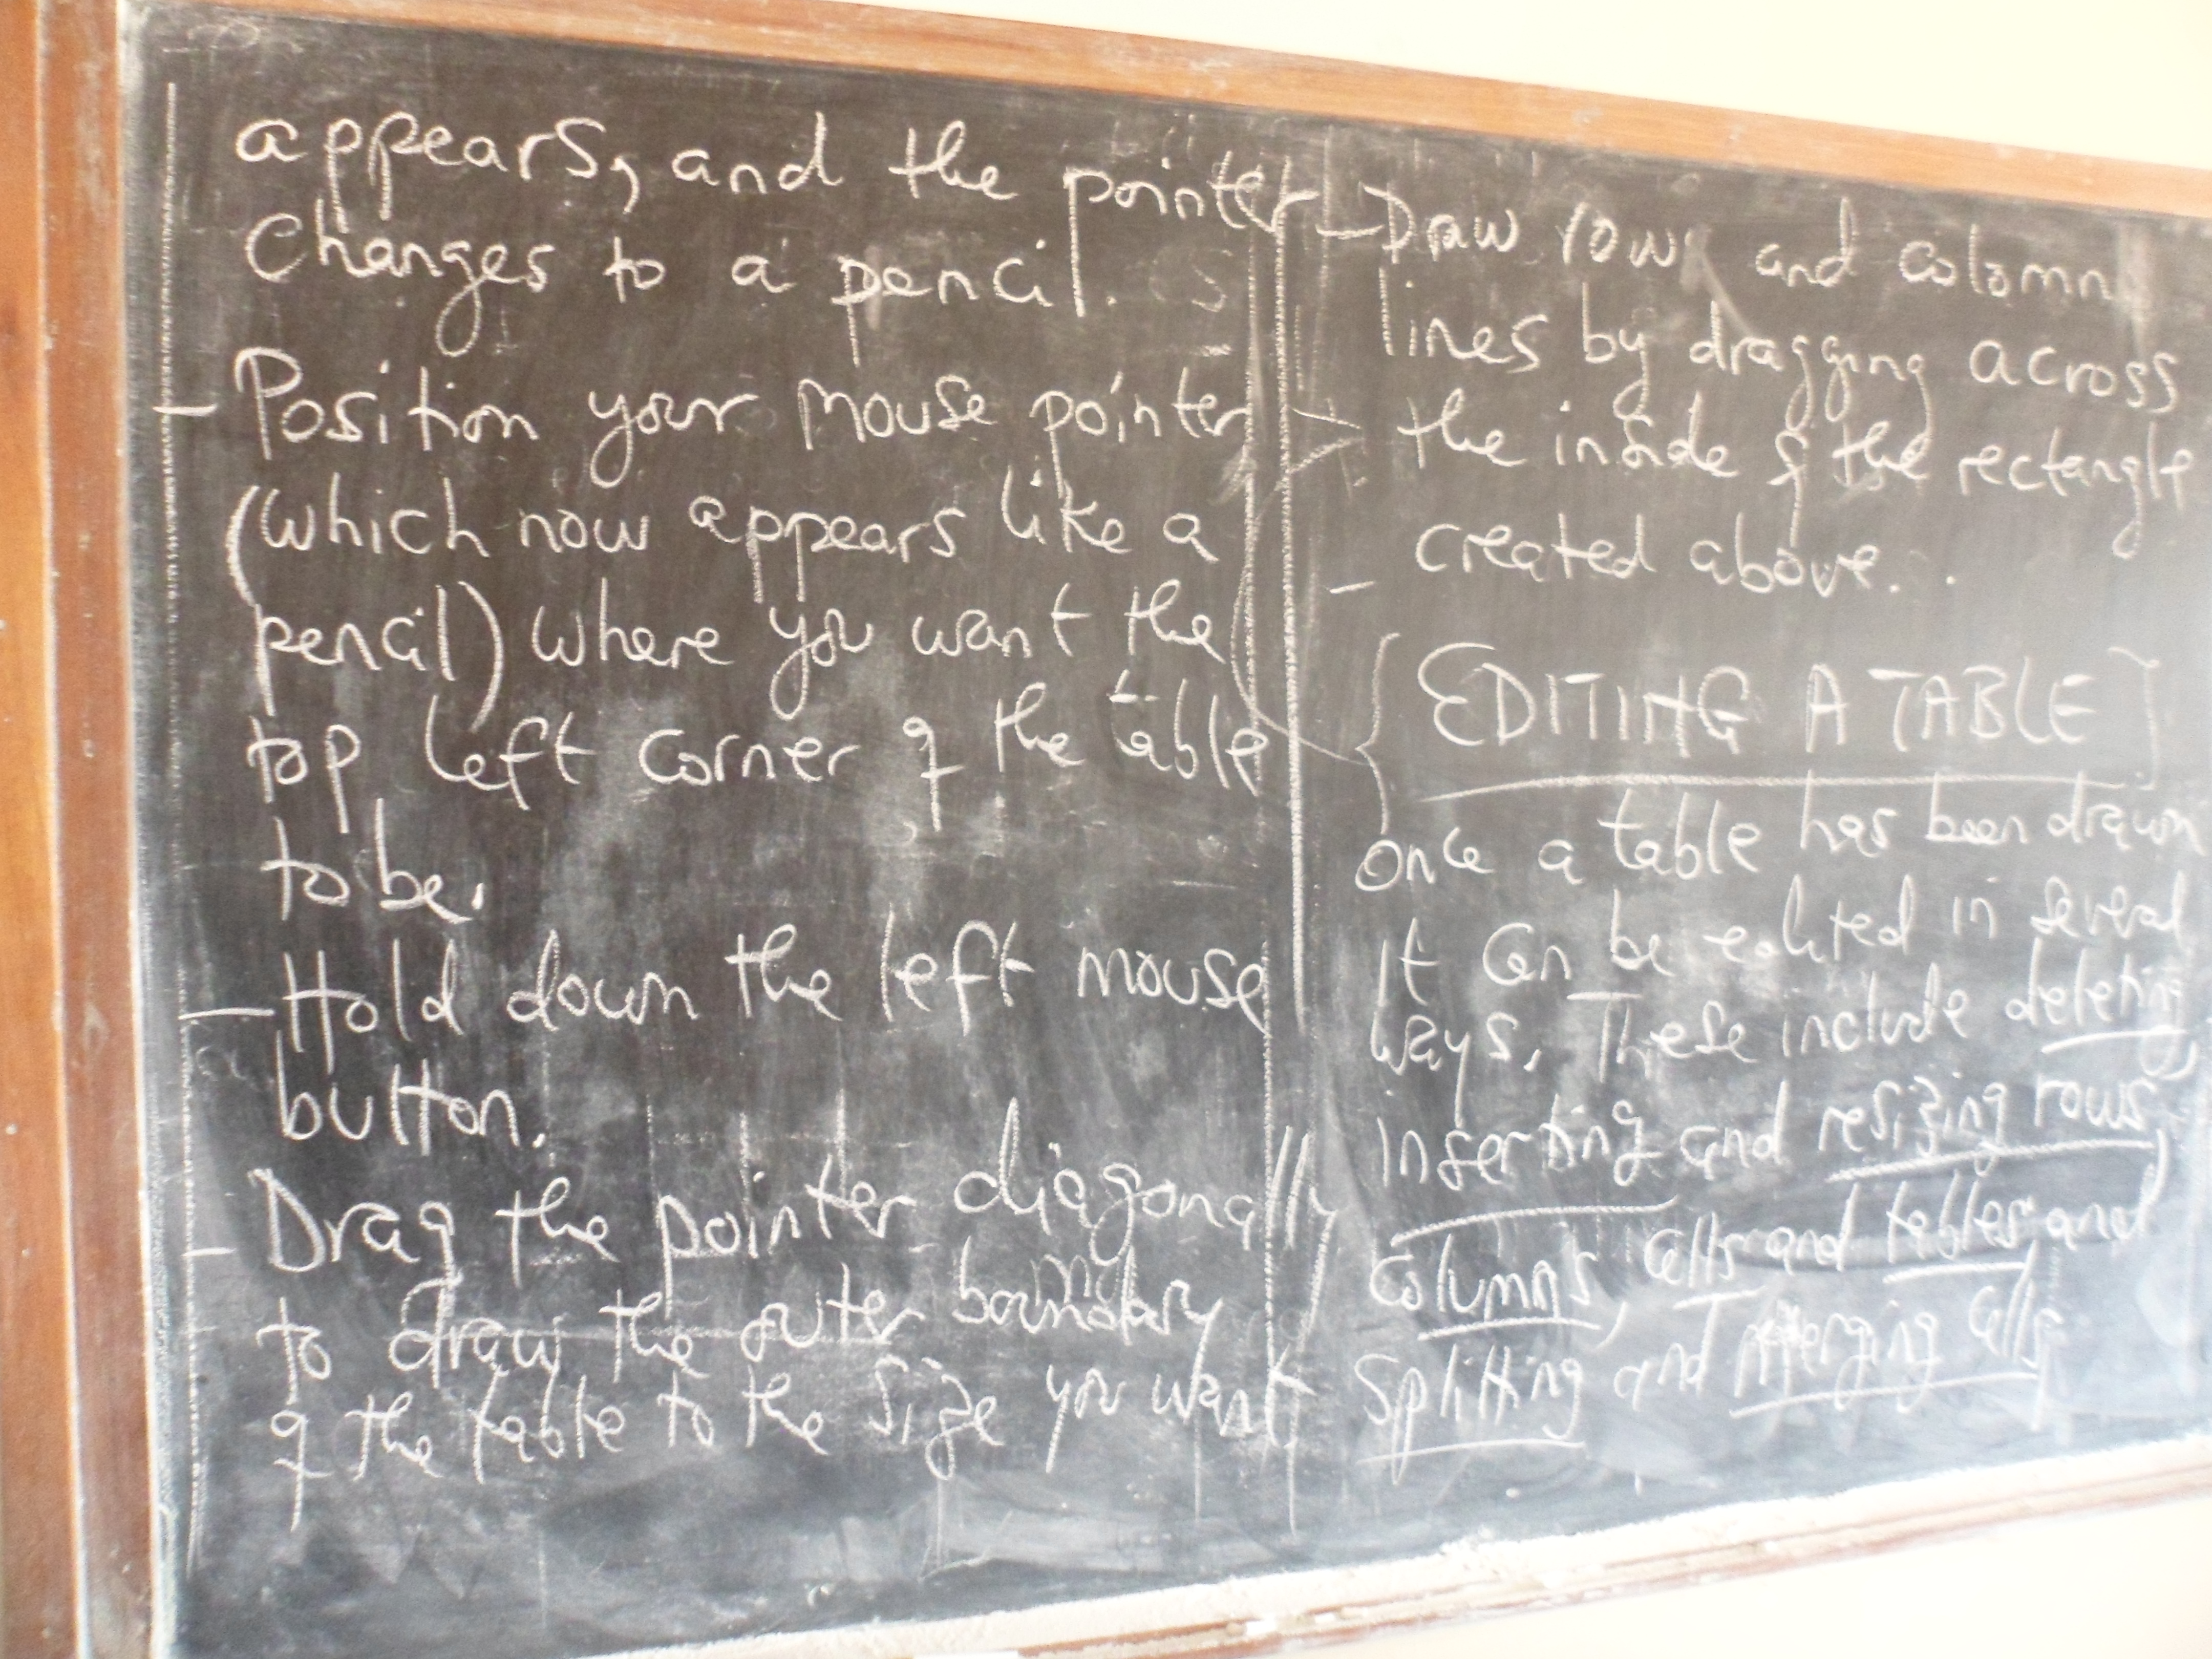 appears, and the pointer
Changes to a pencil.
- Position your mouse pointer
(which now appears like a
pencil) where you want the
top left corner of the table
to be.
- Hold down the left mouse
button.
- Drag the pointer diagonally
to draw the outer boundary
of the table to the size you want
- Draw rows and colomn
lines by dragging across
the inside of the rectangle
created above.
{EDITING A TABLE}
once a table has been drawn
It Can be edited in several
ways. These include deleting,
inserting and resizing rows,
Columns, cells and tables and
Splitting and merging cells